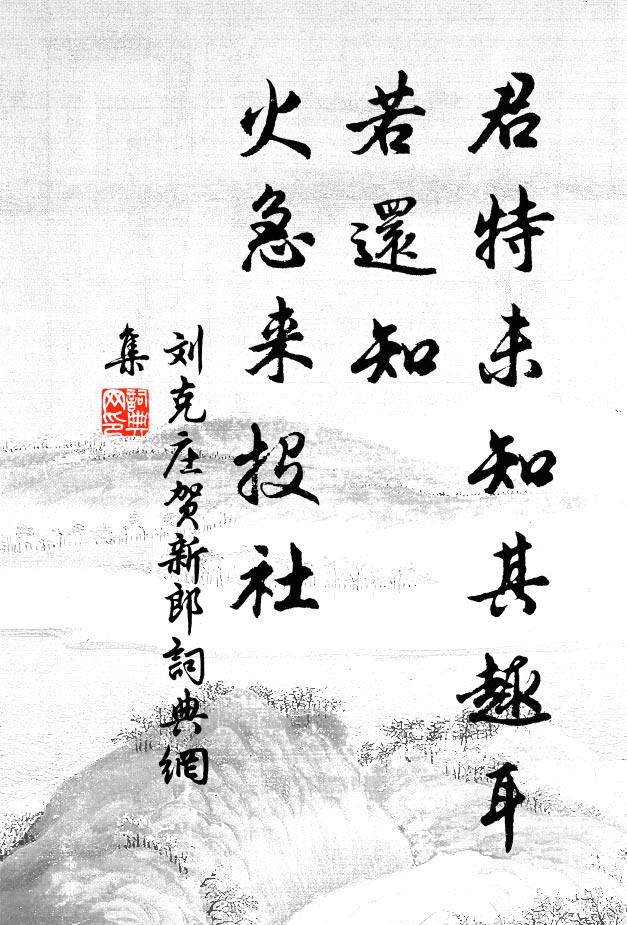 君特未知其趣耳
若還知
火急来投社
刘克庄贺新郎詞典網
集
詞典
网印